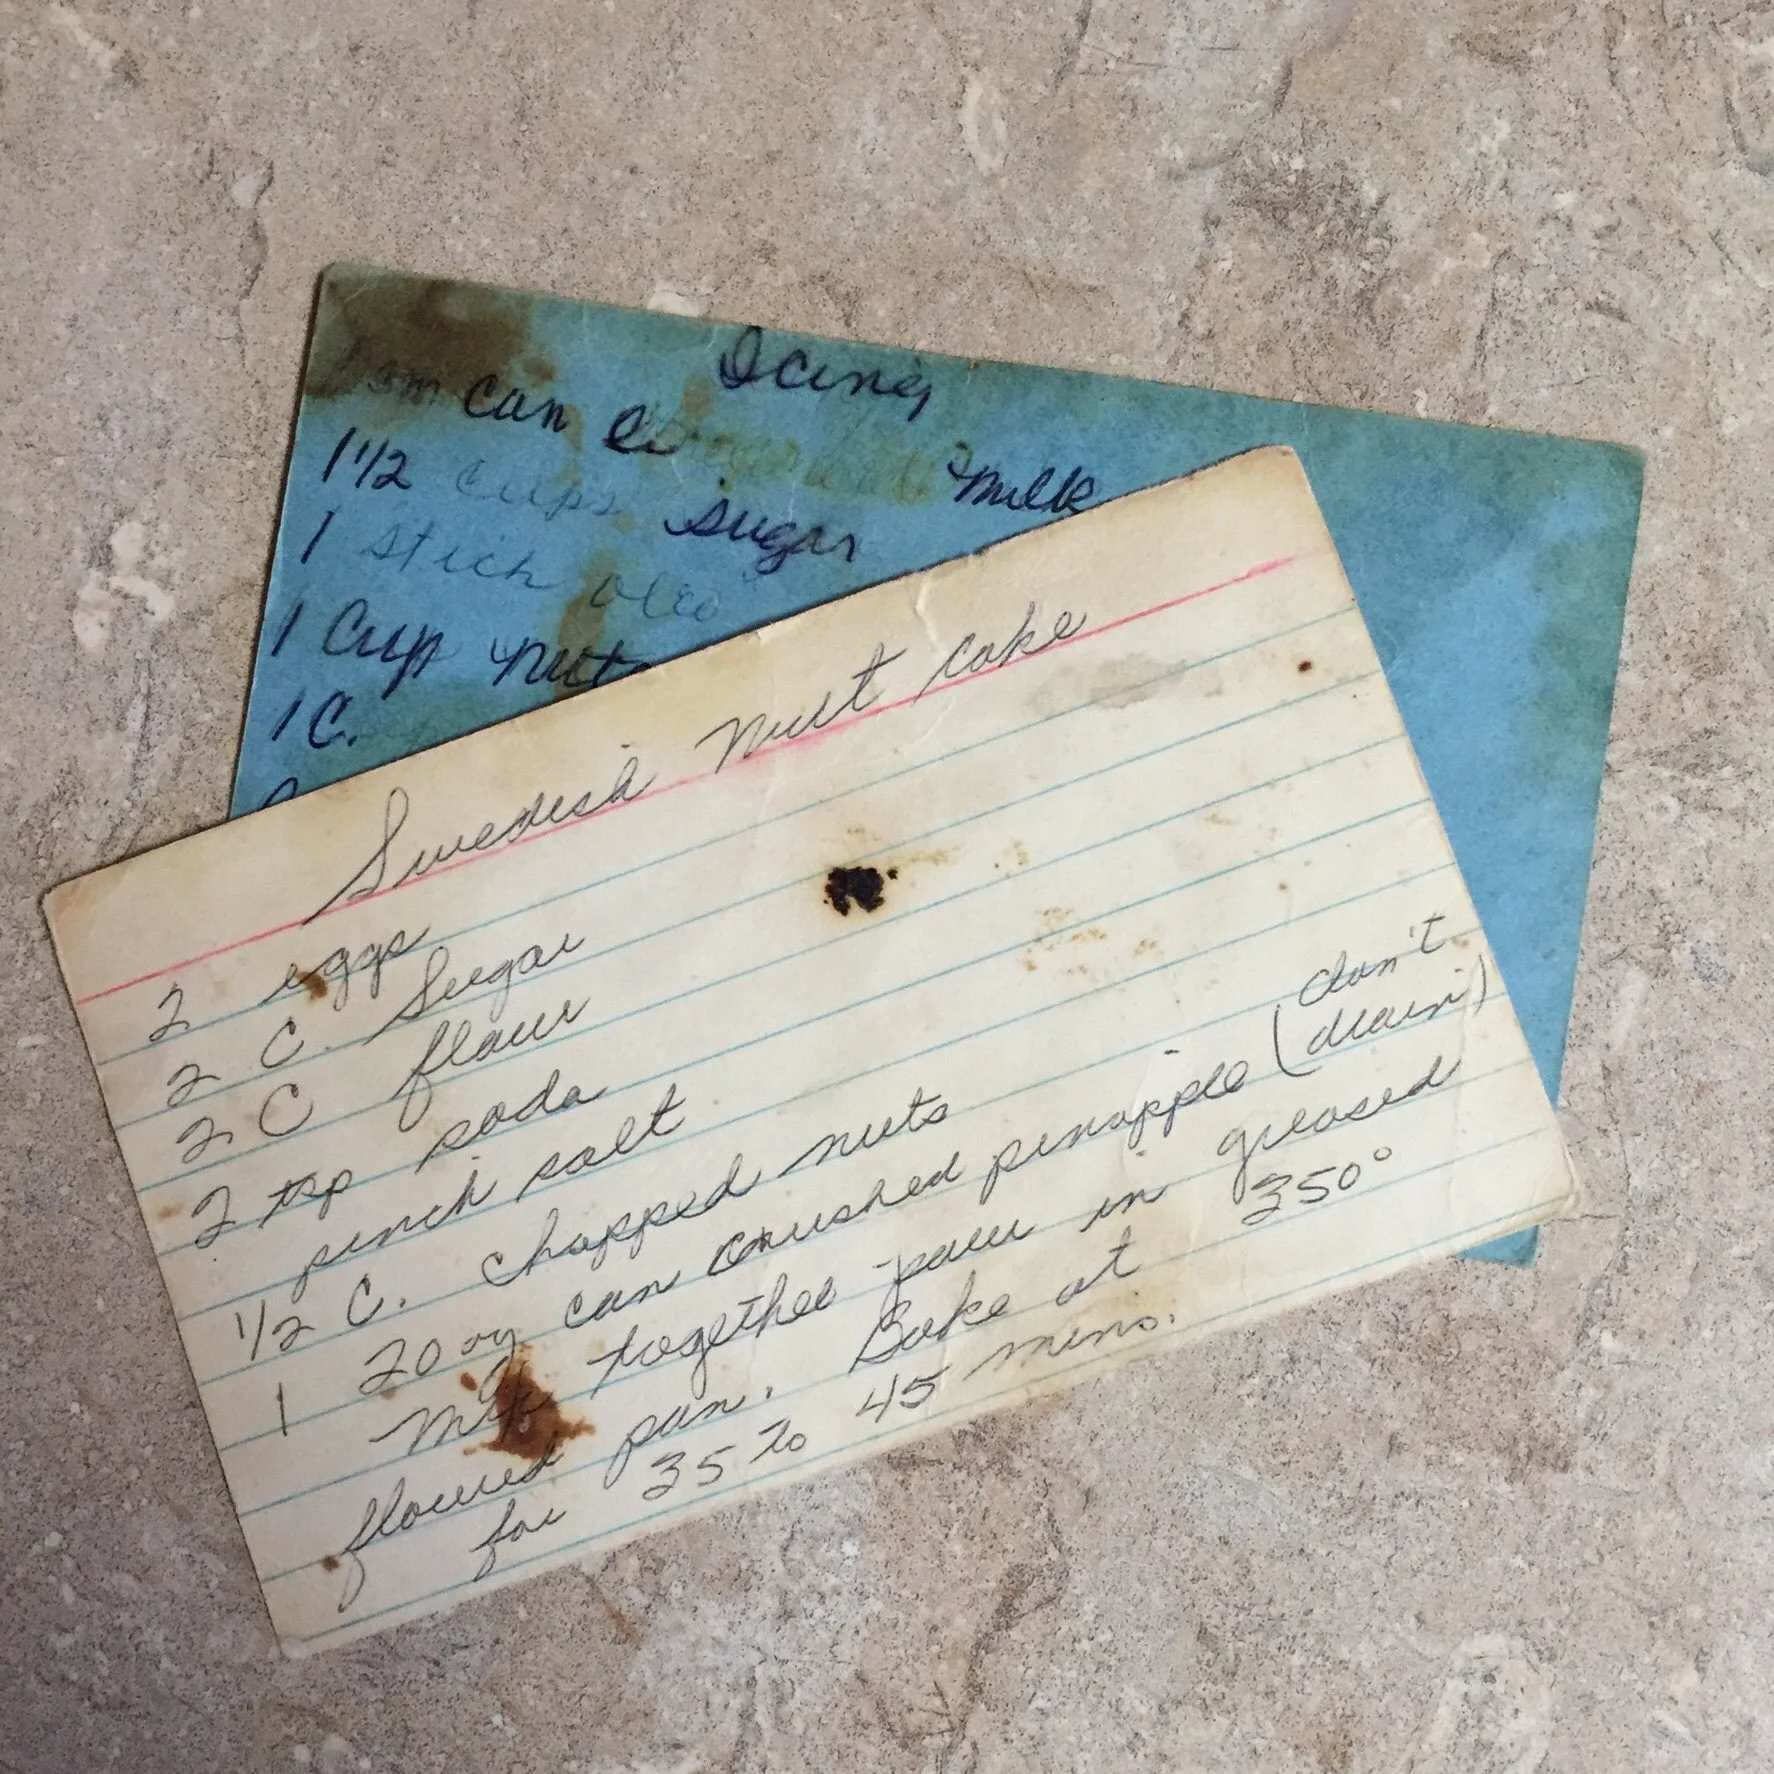 Icing
can milk
1 1/2 cups sugar
1 stick oleo
1 Cup nuts
1 C.
Swedish Nut cake
2 eggs
2 C. Sugar
2 C flour
2 tsp soda
pinch salt
1/2 C. chopped nuts
1 20 oz can crushed pinapple (don't drain)
Mix together pour in greased
floured pan. Bake at 350°
for 35 to 45 mins.